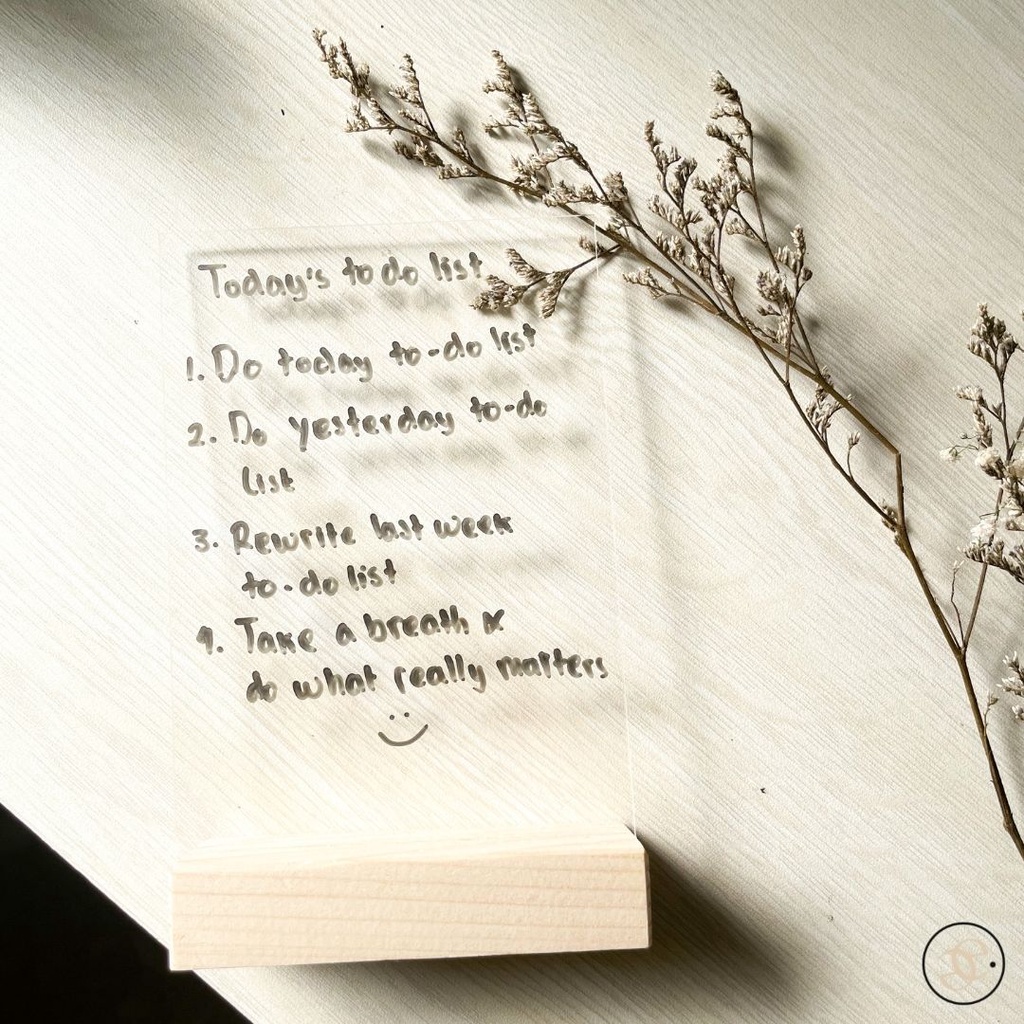 Today's to do list
1. Do today to-do list
2. Do yesterday to-do
list
3. Rewrite last week
to-do list
4. Take a breath &
do what really matters